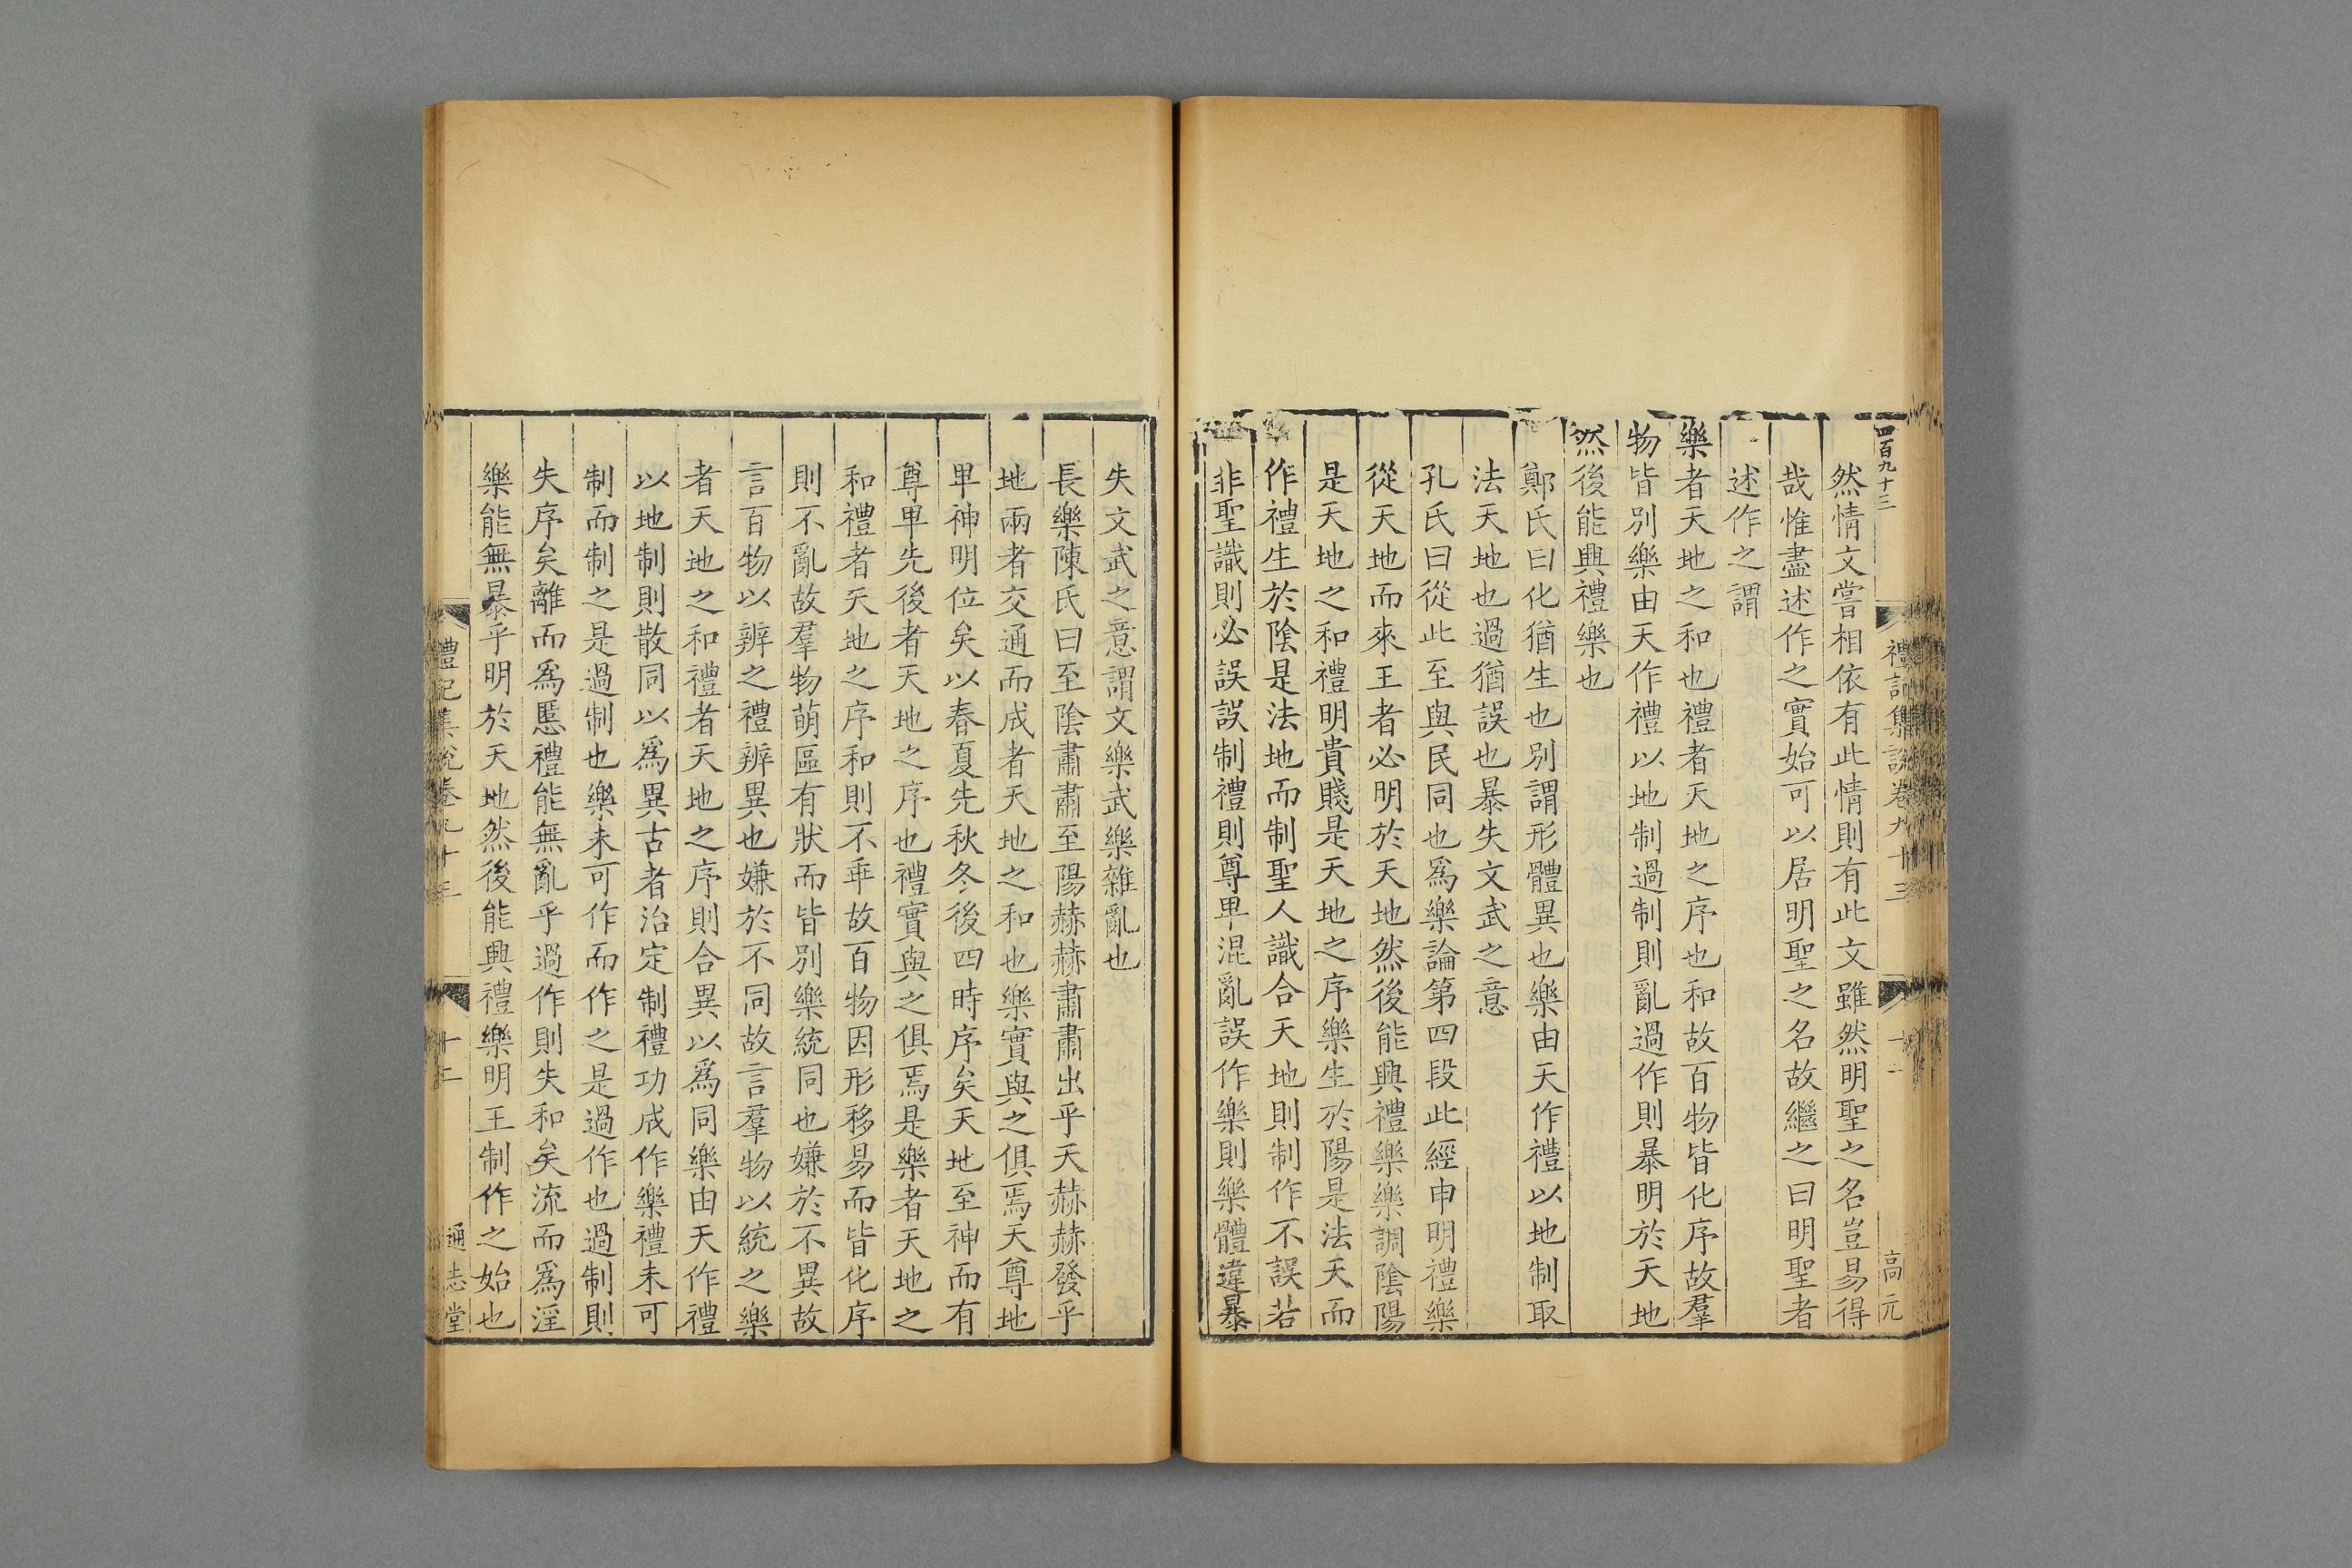 四百九十三
禮記集說卷九十三
高元
然情文嘗相依有此情則有此文雖然明聖之名豈易得
哉惟盡述作之實始可以居明聖之名故繼之曰明聖者
述作之謂
樂者天地之和也禮者天地之序也和故百物皆化序故羣
物皆別樂由天作禮以地制過制則亂過作則暴明於天地
然後能興禮樂也
鄭氏曰化猶生也別謂形體異也樂由天作禮以地制取
法天地也過猶誤也暴失文武之意
孔氏曰從此至與民同也爲樂論第四段此經申明禮樂
從天地而來王者必明於天地然後能興禮樂樂調陰陽
是天地之和禮明貴賤是天地之序樂生於陽是法天而
作禮生於陰是法地而制聖人識合天地則制作不誤若
非聖識則必誤誤制禮則尊卑混亂誤作樂則樂體違暴
失文武之意謂文樂武樂雜亂也
長樂陳氏曰至陰肅肅至陽赫赫肅肅出乎天赫赫發乎
地兩者交通而成者天地之和也樂實與之俱焉天尊地
卑神明位矣以春夏先秋冬後四時序矣天地至神而有
尊卑先後者天地之序也禮實與之俱焉是樂者天地之
和禮者天地之序和則不乖故百物因形移易而皆化序
則不亂故羣物萌區有狀而皆別樂統同也嫌於不異故
言百物以辨之禮辨異也嫌於不同故言羣物以統之樂
者天地之和禮者天地之序則合異以爲同樂由天作禮
以地制則散同以爲異古者治定制禮功成作樂禮未可
制而制之是過制也樂未可作而作之是過作也過制則
失序矣離而爲慝禮能無亂乎過作則失和矣流而爲淫
樂能無暴乎明於天地然後能興禮樂明王制作之始也
禮記集說卷九十三
十二
通志堂